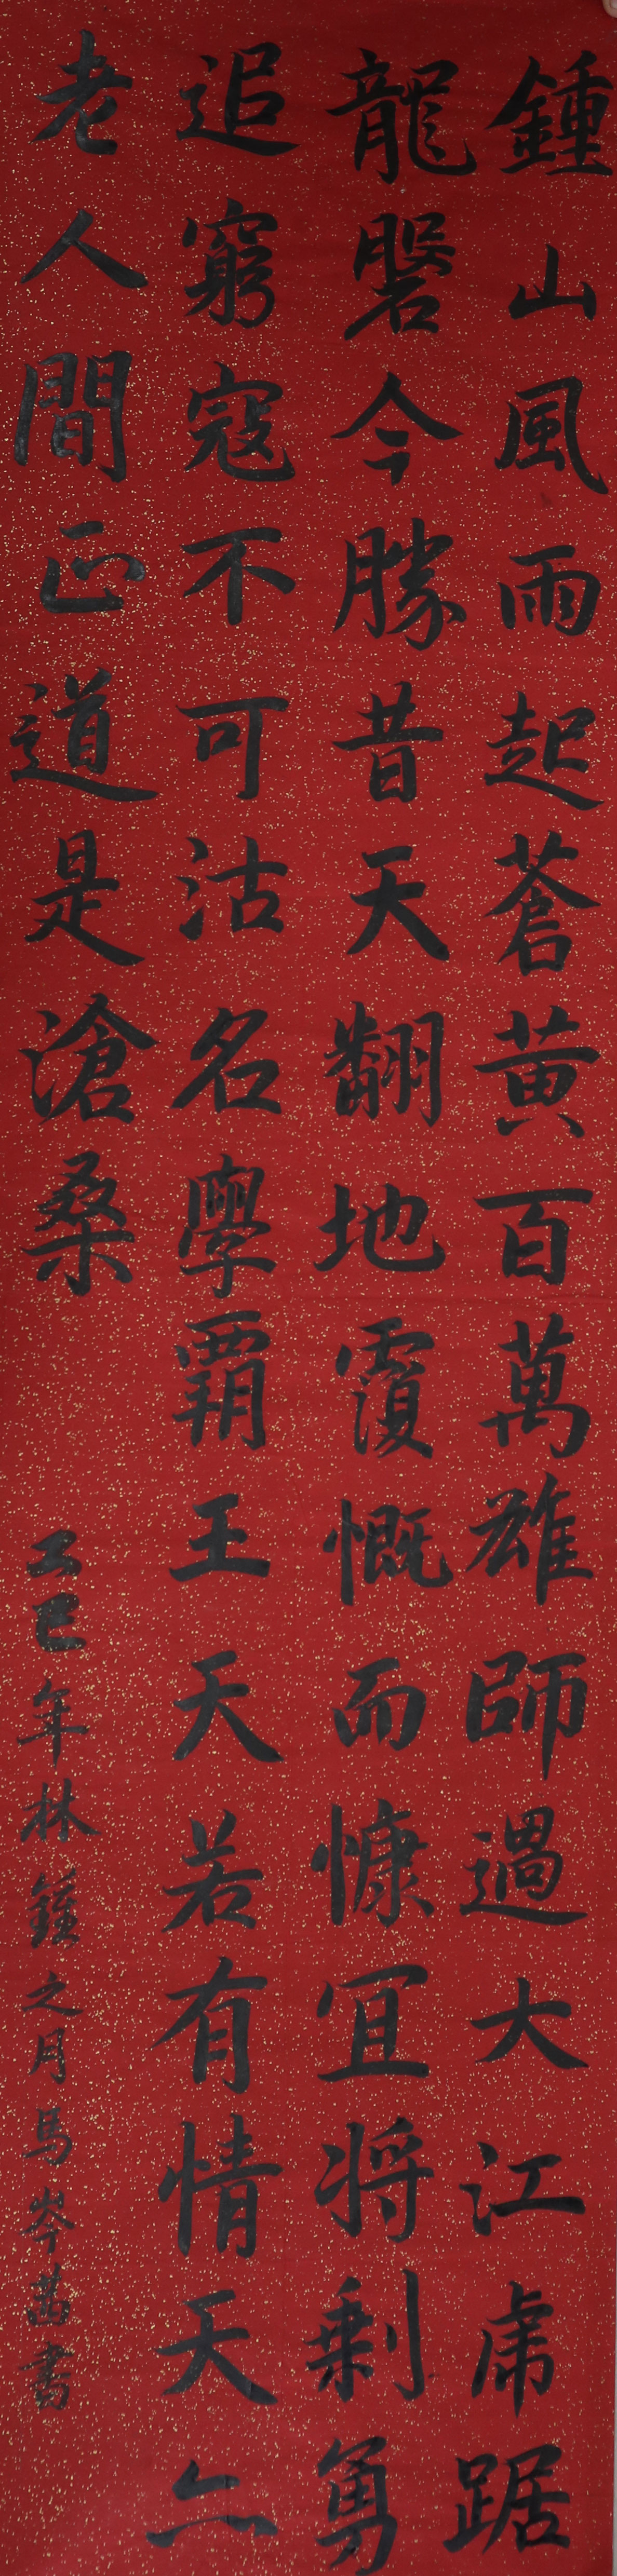 鍾山風雨起蒼黃百萬雄師過大江虎踞
龍磐今勝昔天翻地覆慨而慷宜将剩勇
追窮寇不可沽名學霸王天若有情天亦
老人間正道是滄桑
乙巳年林鐘之月馬岑茜書